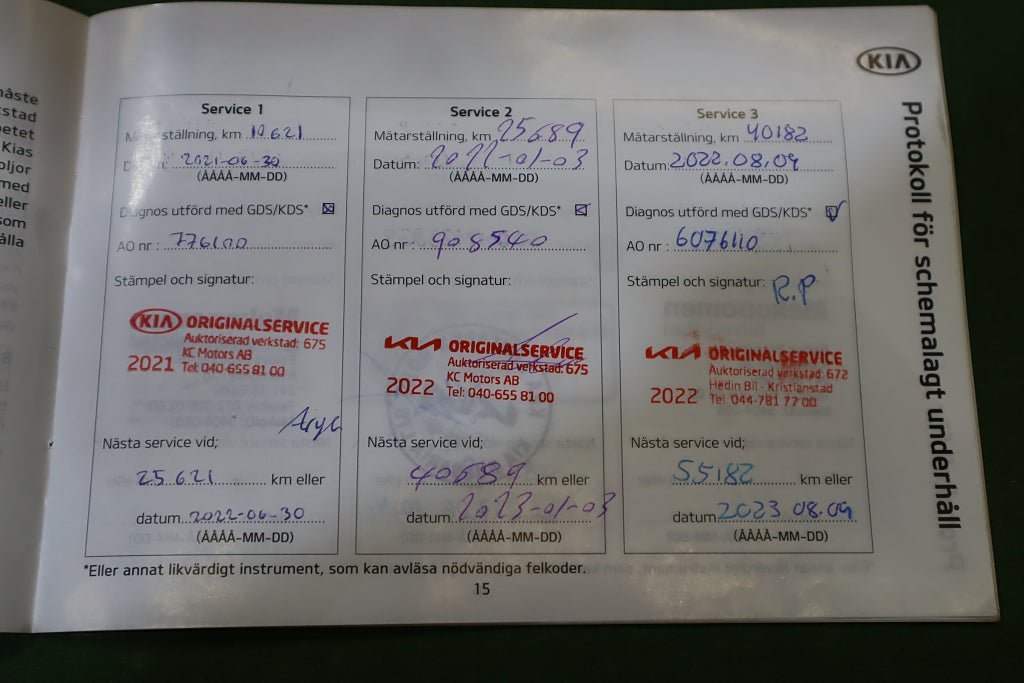 KIA
Protokoll för schemalagt underhåll
Service 1
Mätarställning, km 10.621
Datum: 2021-06-30
(ÅÅÅÅ-MM-DD)
Diagnos utförd med GDS/KDS*
AO nr: 776100
Stämpel och signatur:
KIA ORIGINALSERVICE
Auktoriserad verkstad: 675
KC Motors AB
2021 Tel: 040-655 81 00
Nästa service vid;
25.621 km eller
datum 2022-06-30
(ÅÅÅÅ-MM-DD)
Service 2
Mätarställning, km 25689
Datum: 2022-01-03
(ÅÅÅÅ-MM-DD)
Diagnos utförd med GDS/KDS*
AO nr: 908540
Stämpel och signatur:
KIA ORIGINALSERVICE
Auktoriserad verkstad: 675
KC Motors AB
2022 Tel: 040-655 81 00
Nästa service vid;
40689 km eller
datum 2023-01-03
(ÅÅÅÅ-MM-DD)
Service 3
Mätarställning, km 40182
Datum: 2022.08.09
(ÅÅÅÅ-MM-DD)
Diagnos utförd med GDS/KDS*
AO nr: 6076110
Stämpel och signatur: R.P
KIA ORIGINALSERVICE
Auktoriserad verkstad: 672
Hedin Bil - Kristianstad
2022 Tel: 044-781 77 00
Nästa service vid;
55182 km eller
datum 2023 08.09
(ÅÅÅÅ-MM-DD)
*Eller annat likvärdigt instrument, som kan avläsa nödvändiga felkoder.
15